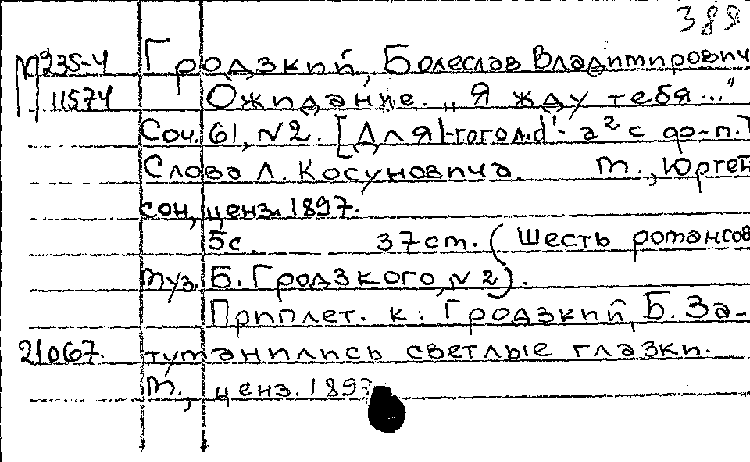 388
М235-4 Гродзкий, Болеслав Владимирович
11574 Ожидание. „Я жду тебя..."
Соч. 61, №2. [Для 1-го гол. d'-a² с ф-п.]
Слова Л. Косуновича. М., Юрген
сон, ценз. 1897.
5с. 37cm. (Шесть романсов
муз. Б. Гродзкого, №2).
Приплет. к: Гродзкий, Б. За-
21067. туманились светлые глазки.
М., ценз. 1897